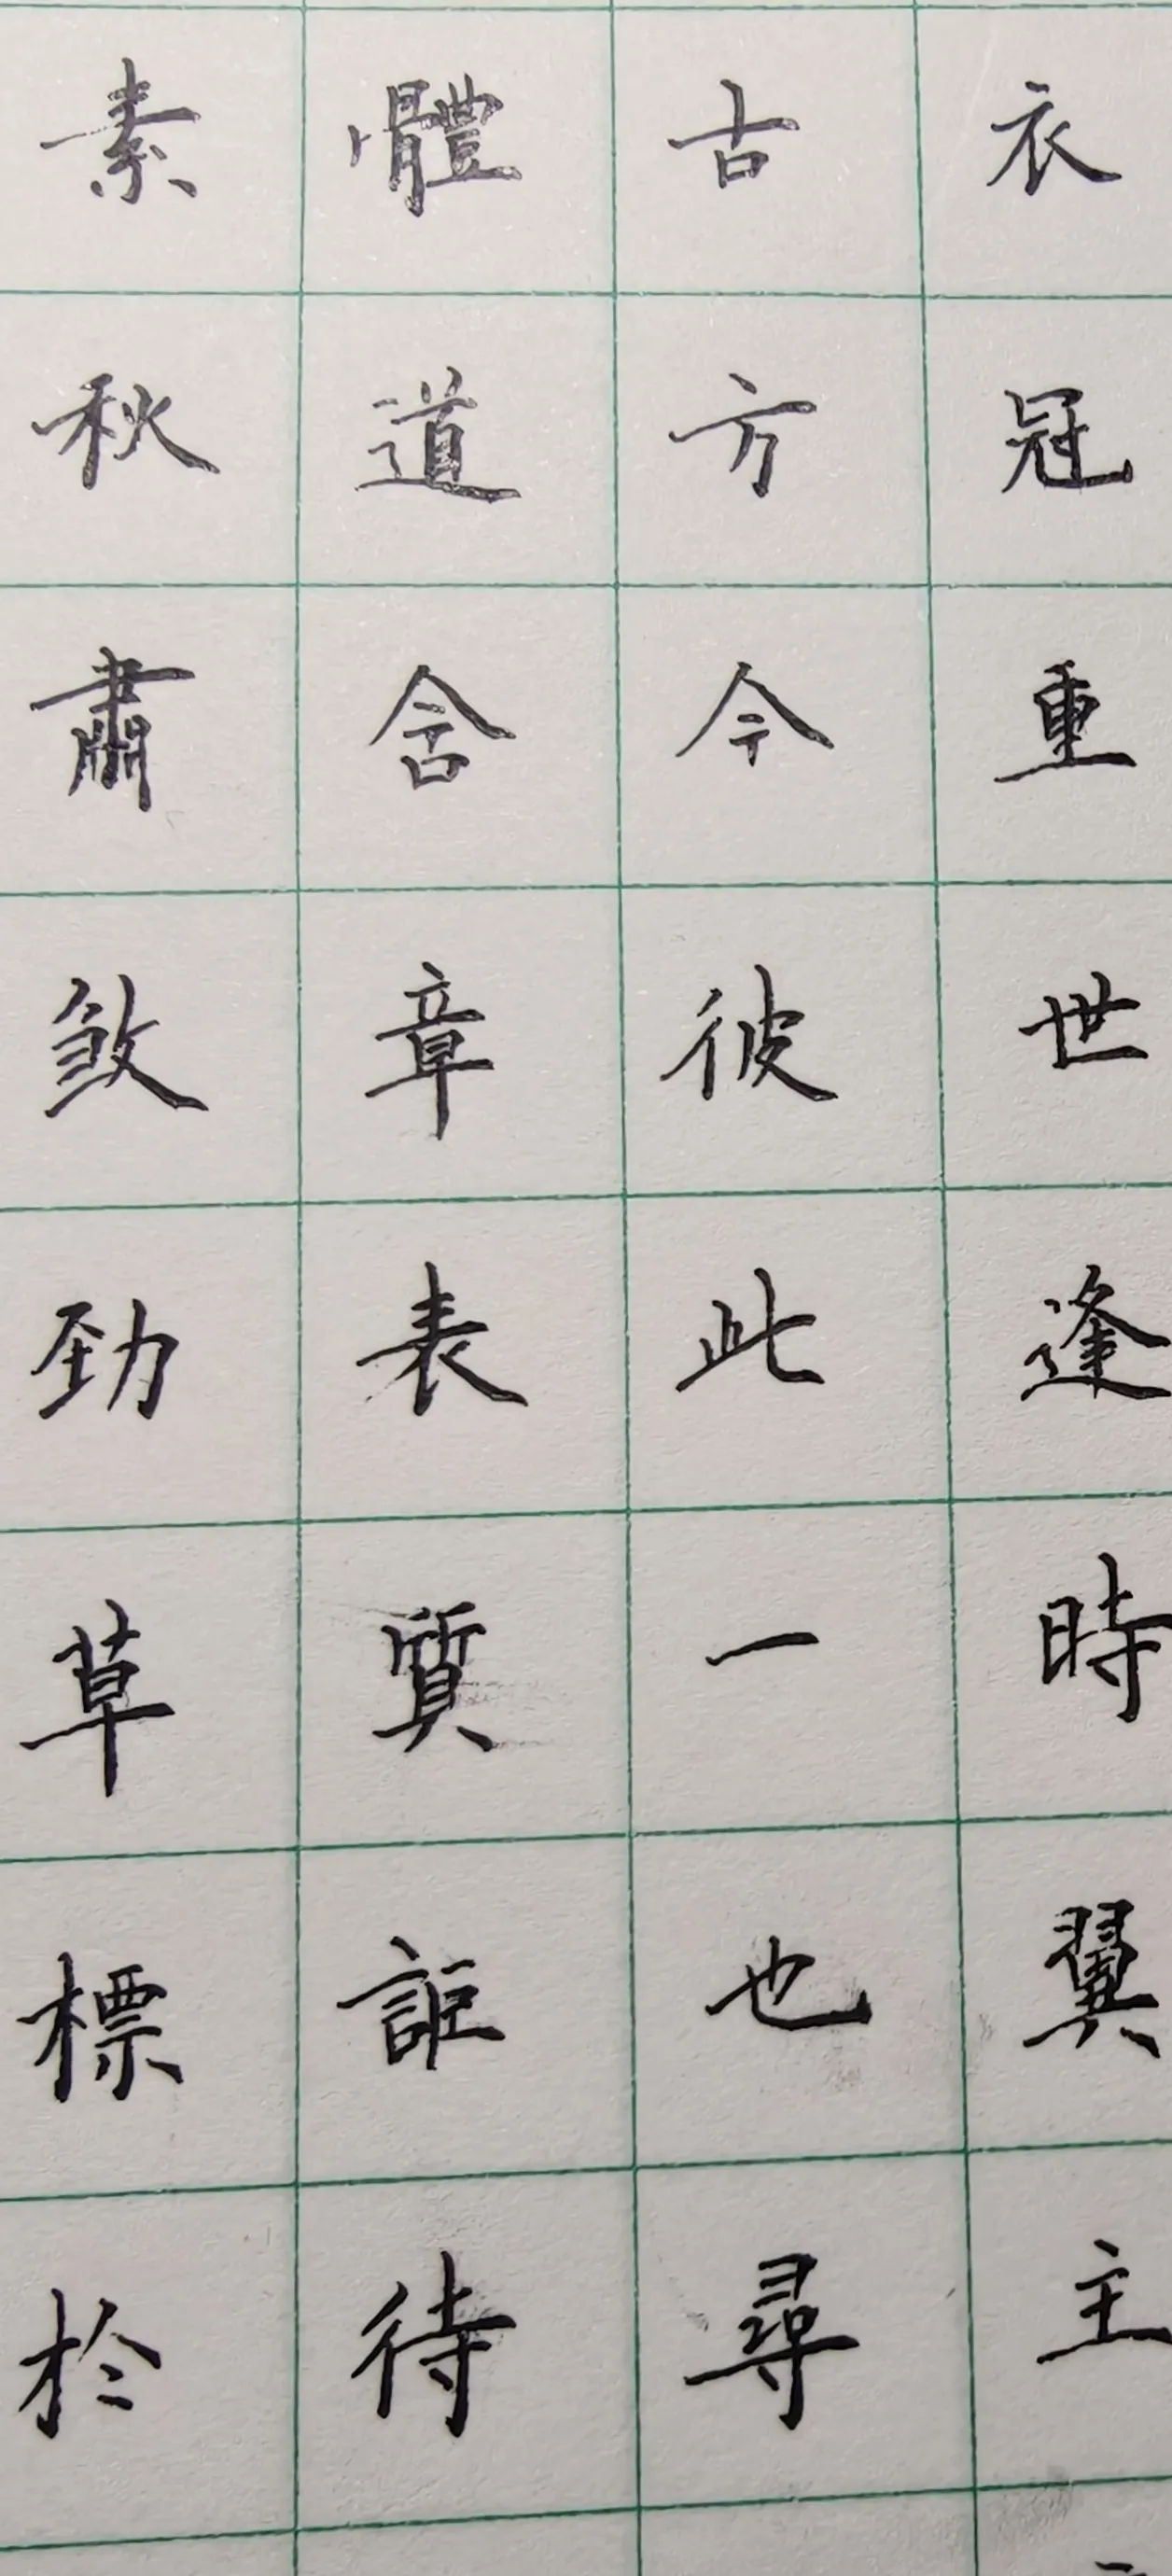 衣冠重世逢時翼主
古方今彼此一也尋
體道含章表質詎待
素秋肅煞勁草標於